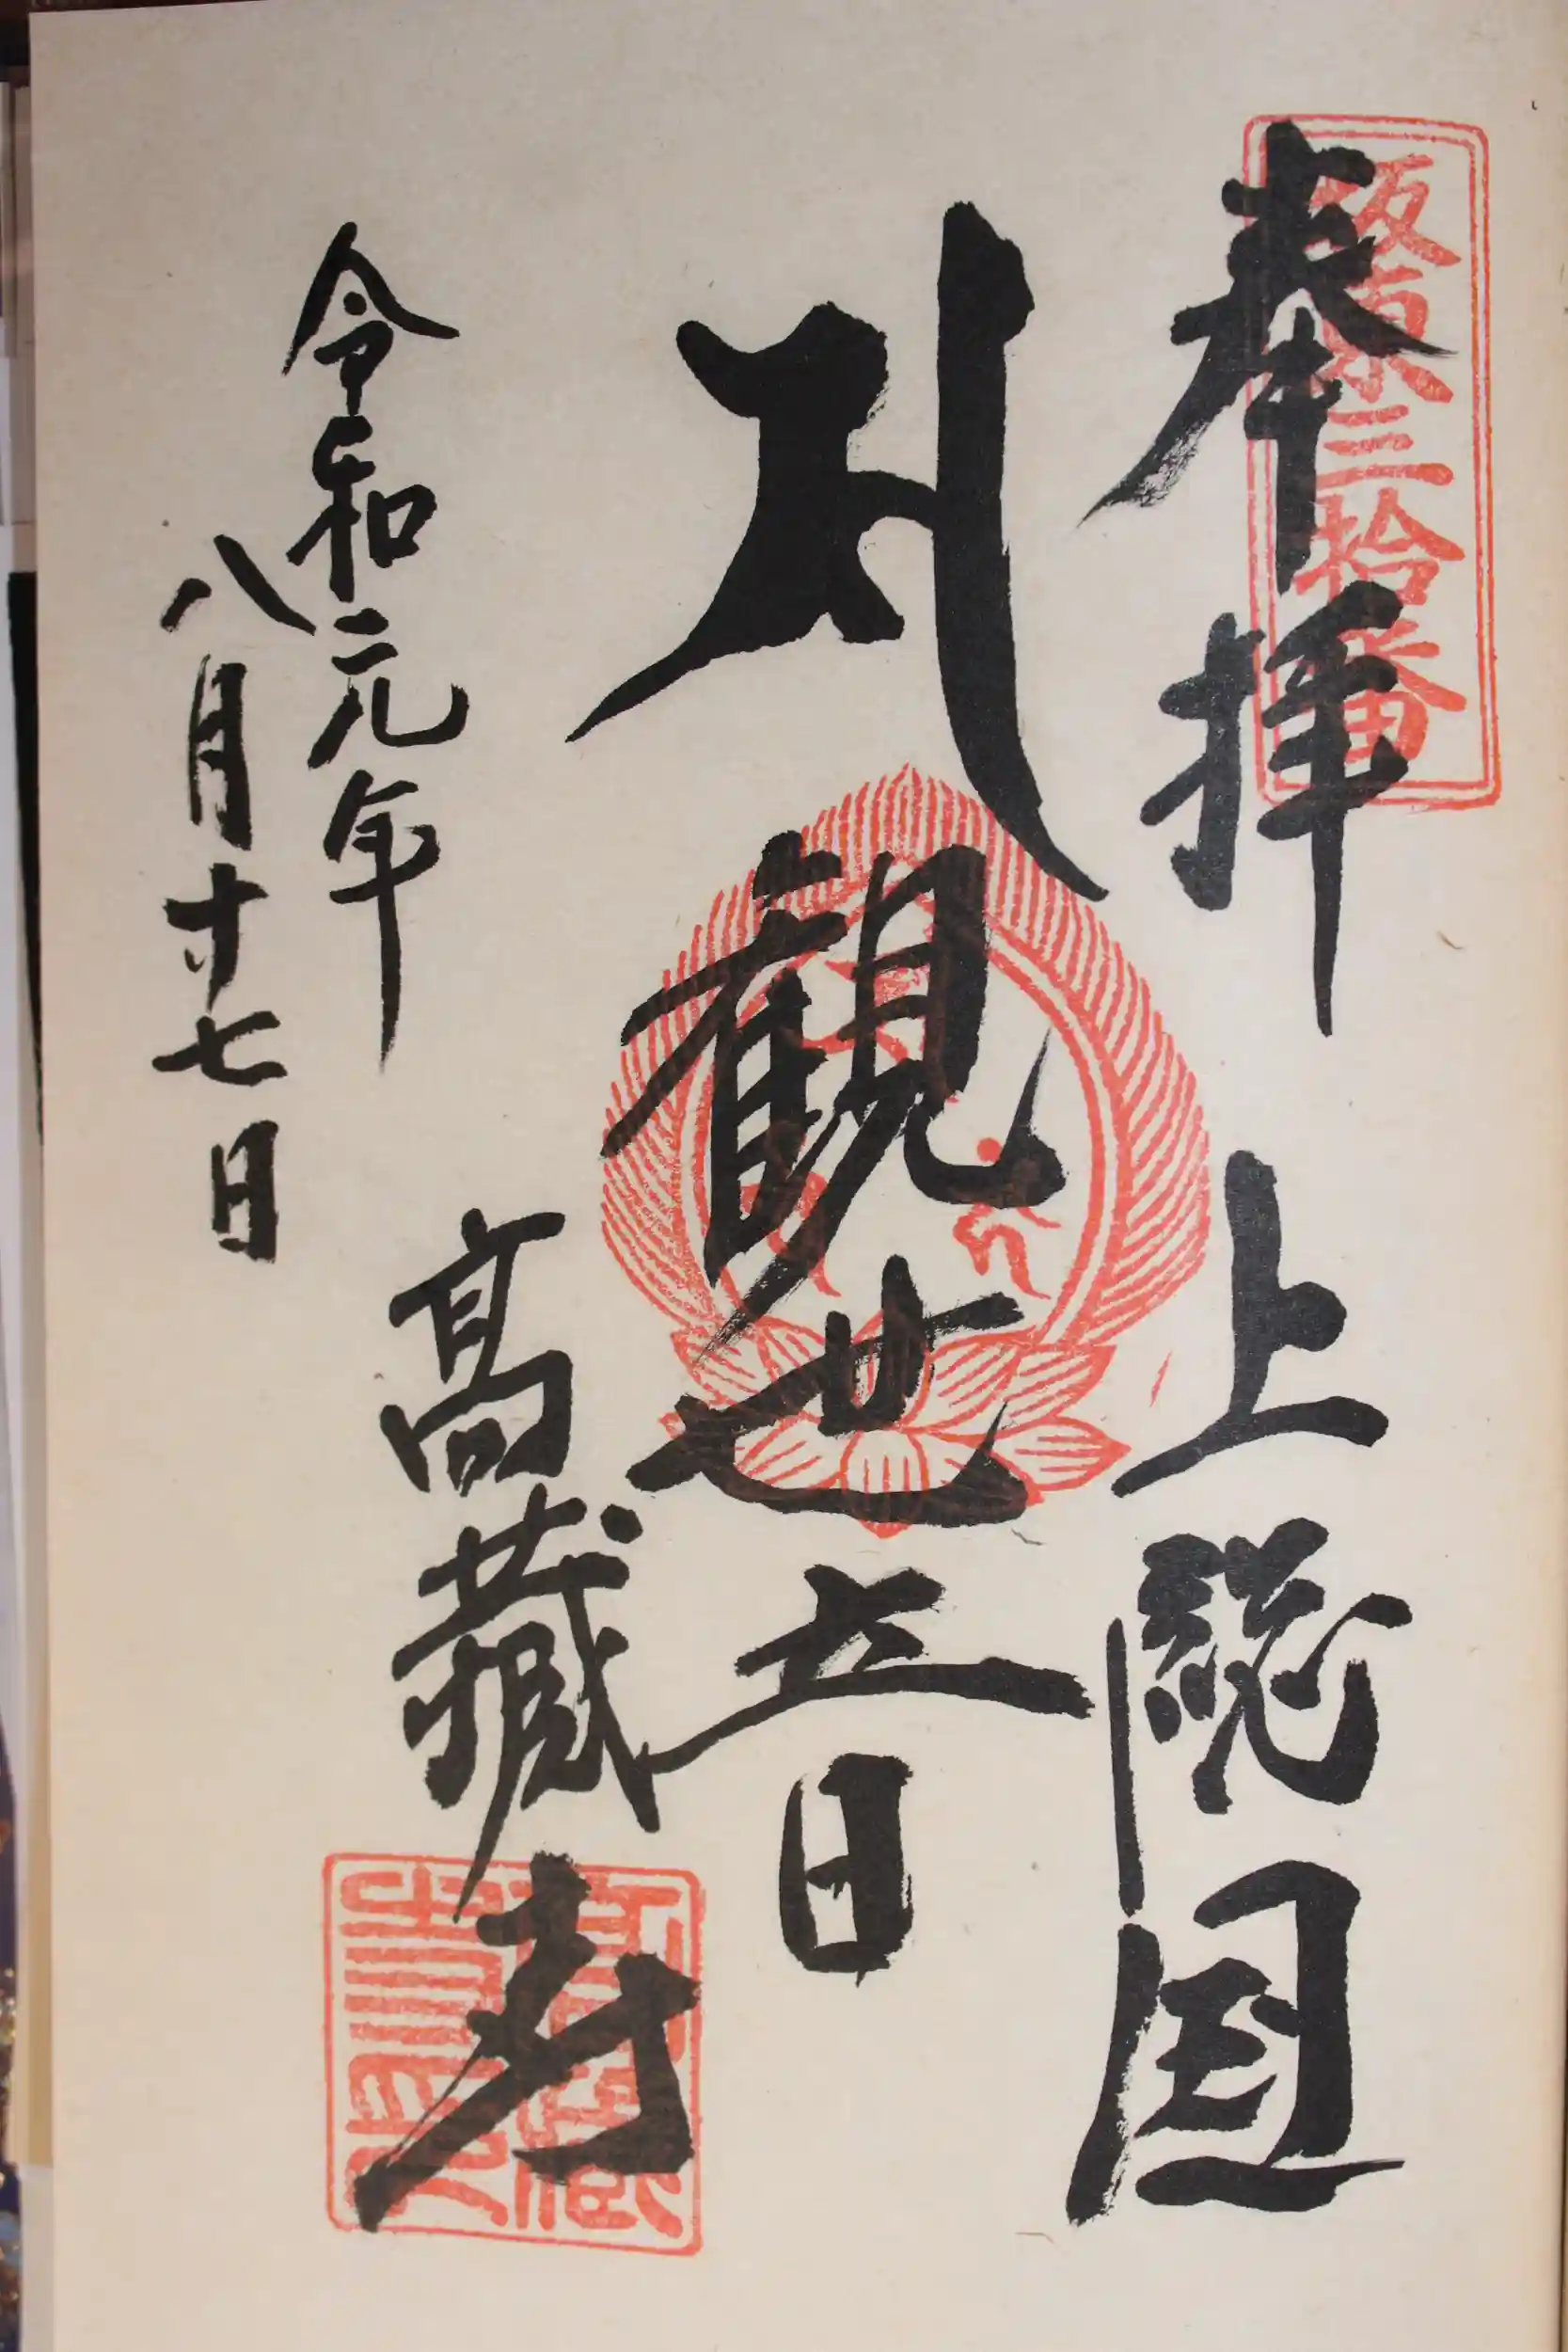 坂東三拾番
奉拝 上総国
サ 観世音
高蔵寺
令和元年
八月十七日